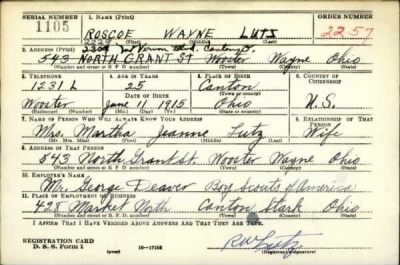 SERIAL NUMBER 1. NAME (Print) ORDER NUMBER
1105 ROSCOE WAYNE LUTZ 2257
(First) (Middle) (Last)
2. ADDRESS (Print)
543 NORTH GRANT ST Wooster Wayne Ohio
(Number and street or R. F. D. number) (Town) (County) (State)
3. TELEPHONE 4. AGE IN YEARS 5. PLACE OF BIRTH 6. COUNTRY OF CITIZENSHIP
1231 L 25 Canton
DATE OF BIRTH (Town or county)
Wooster June 11 1915 Ohio U.S.
(Exchange) (Mo.) (Day) (Yr.) (State or country)
7. NAME OF PERSON WHO WILL ALWAYS KNOW YOUR ADDRESS 8. RELATIONSHIP OF THAT PERSON
Mrs. Martha Jeanne Lutz Wife
(Mr. Mrs. Miss) (First) (Middle) (Last)
9. ADDRESS OF THAT PERSON
543 North Grant St. Wooster Wayne Ohio
(Number and street or R. F. D. number) (Town) (County) (State)
10. EMPLOYER'S NAME
Mr. George Deaver Boy Scouts of America
11. PLACE OF EMPLOYMENT OR BUSINESS
428 Market North Canton Stark Ohio
(Number and street or R. F. D. number) (Town) (County) (State)
I AFFIRM THAT I HAVE VERIFIED ABOVE ANSWERS AND THAT THEY ARE TRUE.
REGISTRATION CARD
D. S. S. Form 1 (over) 16-17105 RW Lutz
(Registrant's signature)